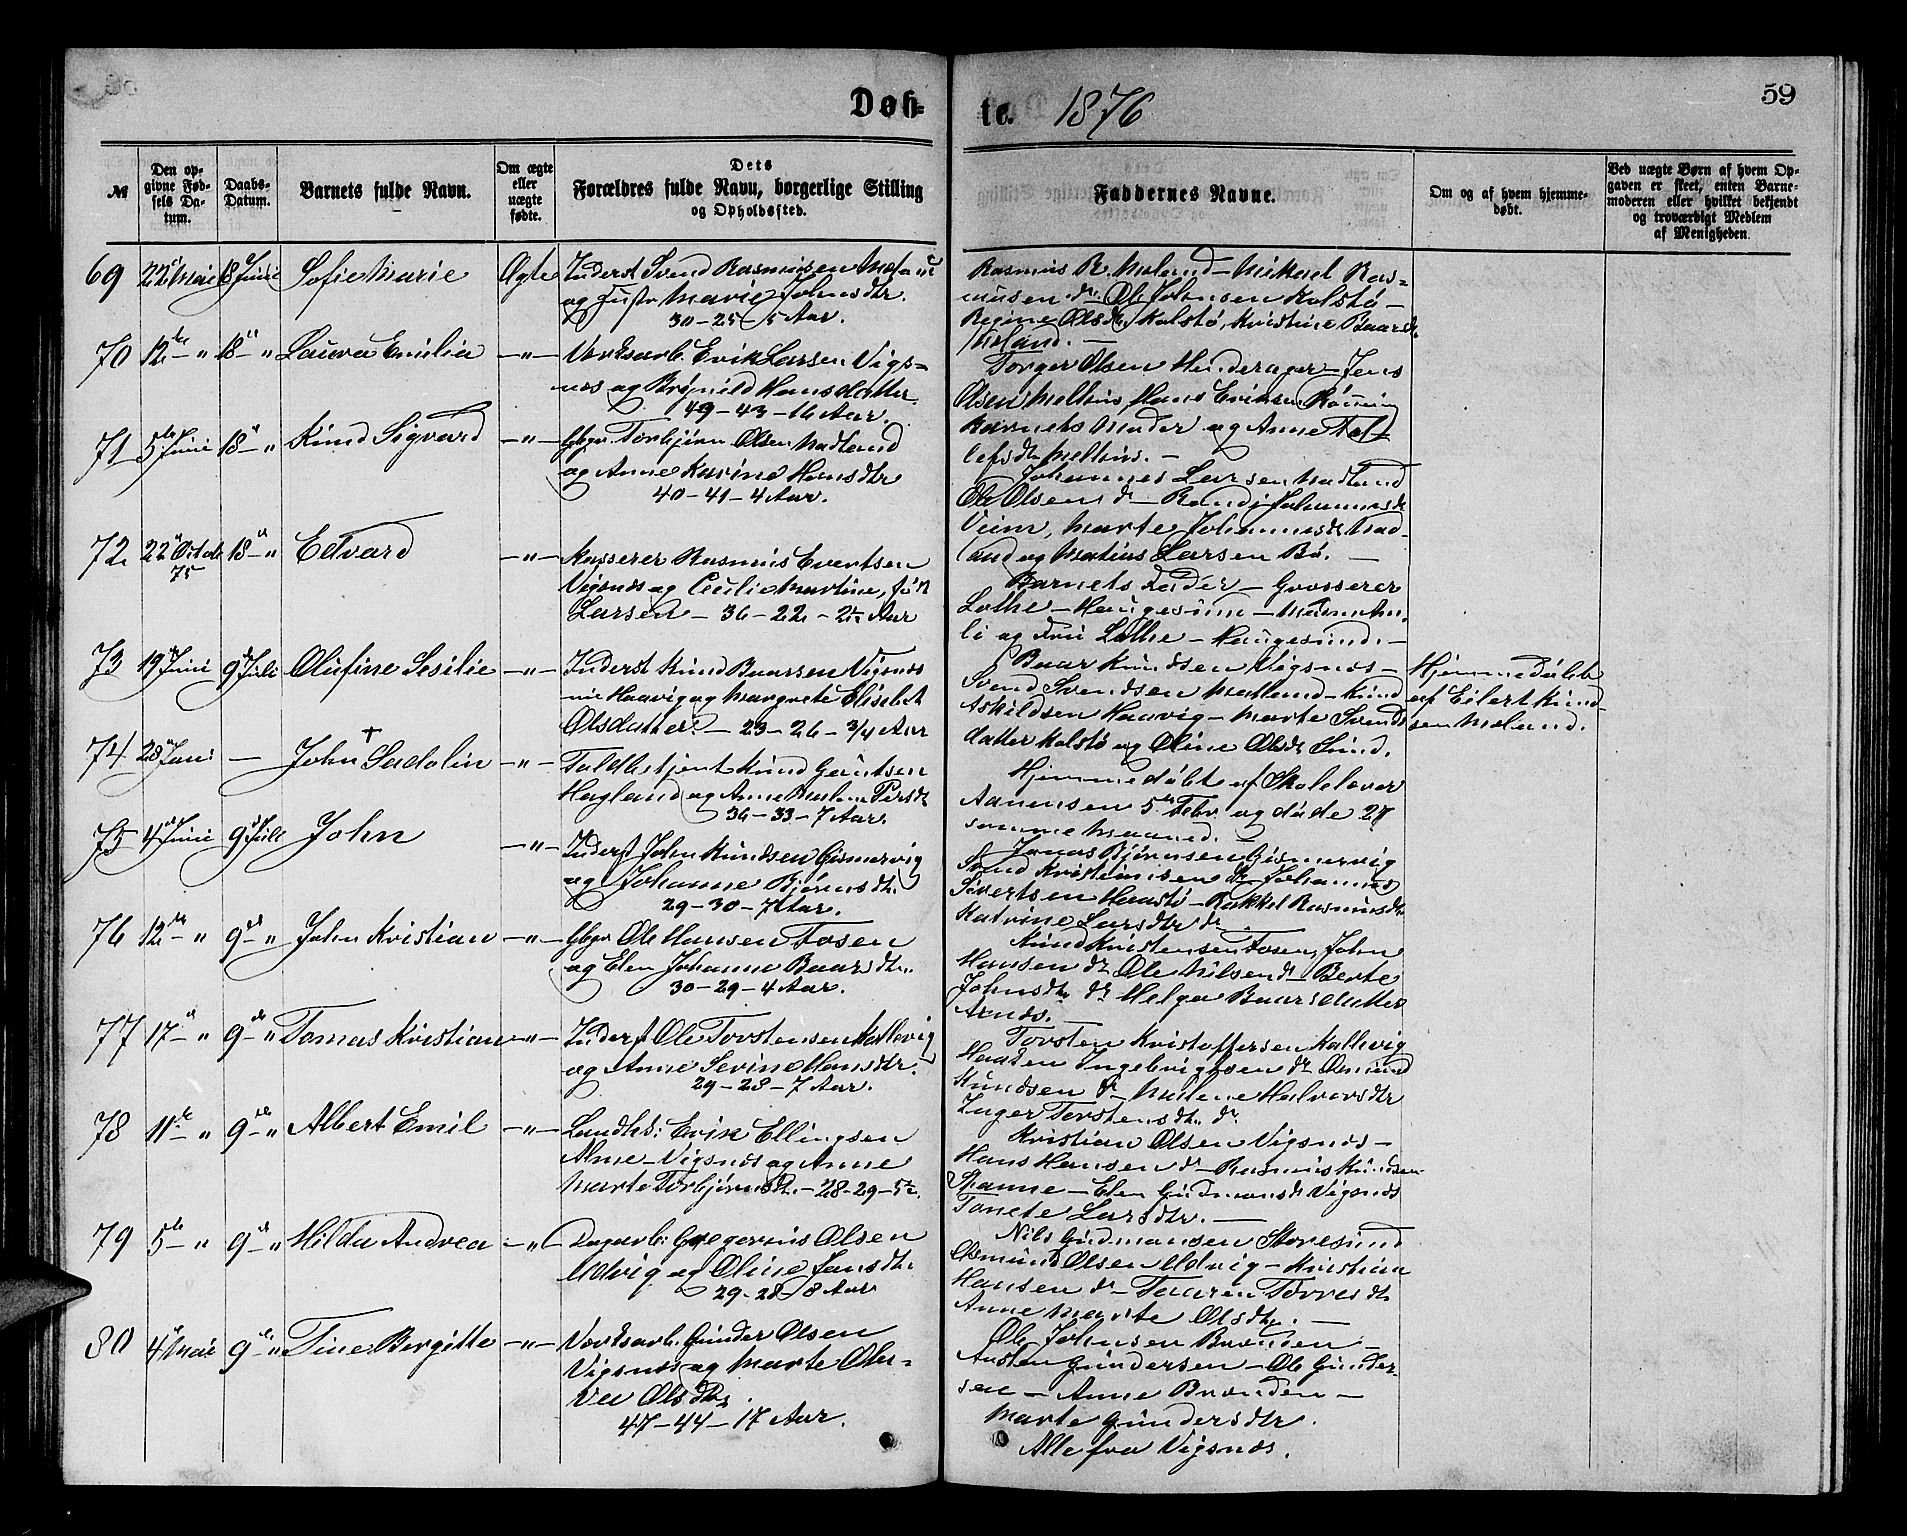 Døb-
te. 1876
59
№
Den op-
givne Fød-
sels Da-
tum.
Daabs-
Datum.
Barnets fulde Navn.
Om ægte
eller
uægte
fødte.
Dets
Forældres fulde Navn, borgerlige Stilling
og Opholdssted.
Faddernes Navne.
Om og af hvem hjemme-
døbt.
Ved uægte Børn af hvem Op-
gaven er skeet, enten Barne-
moderen eller hvilket bekjendt
og troværdigt Medlem
af Menigheden.
69 22 Mai 18 Juni Sofie Marie Ægte
Inderst Svend Rasmussen
og Hustr. Marie Johnsdtr.
30 - 25 - 5 Aar.
Rasmus R. Moland - Mikael Ras-
musen do Ole Johnsen Kolstø -
Regine Olsdtr Kolstø, Kristine Baarsdtr
Moland. -
70 12te - " 18 - " Laura Emilia - " -
Verksarb. Erik Larsen Vigs-
næs og Brynild Hansdatter.
49 - 43 - 16 Aar.
Torger Olsen Hinderager - Jens
Olsen Melhus, Hans Eriksen
Barnets Moder og Anne Tol-
lefsdtr Melhus. -
71 5te Juni 18 - " Knud Sigvard - " -
Gbgr Torbjørn Olsen Nadland
og Anne Karine Hansdtr
40 - 41 - 4 Aar.
Johannes Larsen Nadland
Ole Olsen do - Randi Johannesdtr
Veim, Marte Johannesdtr Nad-
land og Matius Larsen Bø. -
72 22 Octob 75 18 - " Edvard - " -
Kasserer Rasmus Evertsen
Vigsnæs og Cecilie Martine, fød
Larsen - 36 - 22 - 2½ Aar
Barnets Fader - Grosserer
Lothe - Haugesund -
og Fru Lothe - Haugesund. -
73 19 Juni 9 Juli Olufine Sesilie - " -
Inderst Knud Baarsen Vigsnæs
Haavig og Margrete Elisabet
Olsdatter. - 23 - 26 - 3/4 Aar
Baar Knudsen Vigsnæs -
Svend Svendsen Matland - Knud
Askildsen Haavig - Marte Svends-
datter Kolstø og Oline Olsdtr Sund.
Hjemmedøbt
af Eilert Knud-
sen Moland.
74 28 Juni - John Sadolin † - " -
Toldbetjent Knud Gautsen
Hagland og Anne Malene Persdtr
36 - 33 - 7 Aar.
Hjemmedøbt af Skolelærer
Aanensen 5te Febr. og døde 28
samme Maaned. -
75 4de Juni 9de Juli John - " -
Inderst John Knudsen Gismervig
og Johanne Bjørnsdtr.
29 - 30 - 7 Aar.
Jonas Bjørnsen Gismervig
Svend Kristiansen do - Johannes
Sivertsen Haastø - Rakkel Rasmusdtr
Katrine Larsdtr do.
76 12te - " 9de - " John Kristian - " -
Gbgr Ole Hansen Fosen
og Elen Johanne Baarsdtr.
30 - 29 - 4 Aar.
Knud Kristensen Fosen, John
Hansen do Ole Nilsen do - Berte
Johnsdtr do Helga Baarsdatter
77 17de - " 9de - " Tomas Kristian - " -
Inderst Ole Torstensen Kallevig
og Anne Serine Hansdtr.
29 - 28 - 7 Aar.
Torsten Kristoffersen Kallevig
Haaken Ingebrigtsen do Osmund
Knudsen do - Malene Halvorsdtr
Inger Torstensdtr. do.
78 11te - " 9de - " Albert Emil - " -
Landhd: Erik Ellingsen
Alne - Vigsnæs og Anne
Marte Torbjørnsdtr. - 28 - 29 - 5½.
Kristian Olsen Vigsnæs -
Hans Hansen do - Rasmus Knudsen
Spanne - Elen Gudmansdtr Vigsnæs
Tonete Larsdtr. -
79 5te - " 9de - " Hilda Andrea - " -
Dagarb: Gregorius Olsen
Udvig og Oline Jansdtr.
29 - 28 - 8 Aar
Nils Gudmansen Storesund
Osmund Olsen Udvig - Kristian
Hansen do - Taaren Torresdtr
Anne Marte Olsdtr. -
80 4 Mai 9de - " Tine Bergitte - " -
Verksarb. Gunder Olsen
Vigsnæs og Marte Oli-
vea Olsdtr.
47 - 44 - 17 Aar.
Ole Johnsen Brønden -
Austen Gundersen - Ole Gunder-
sen - Anne Brønden -
Marte Gundersdtr.
Alle fra Vigsnæs.